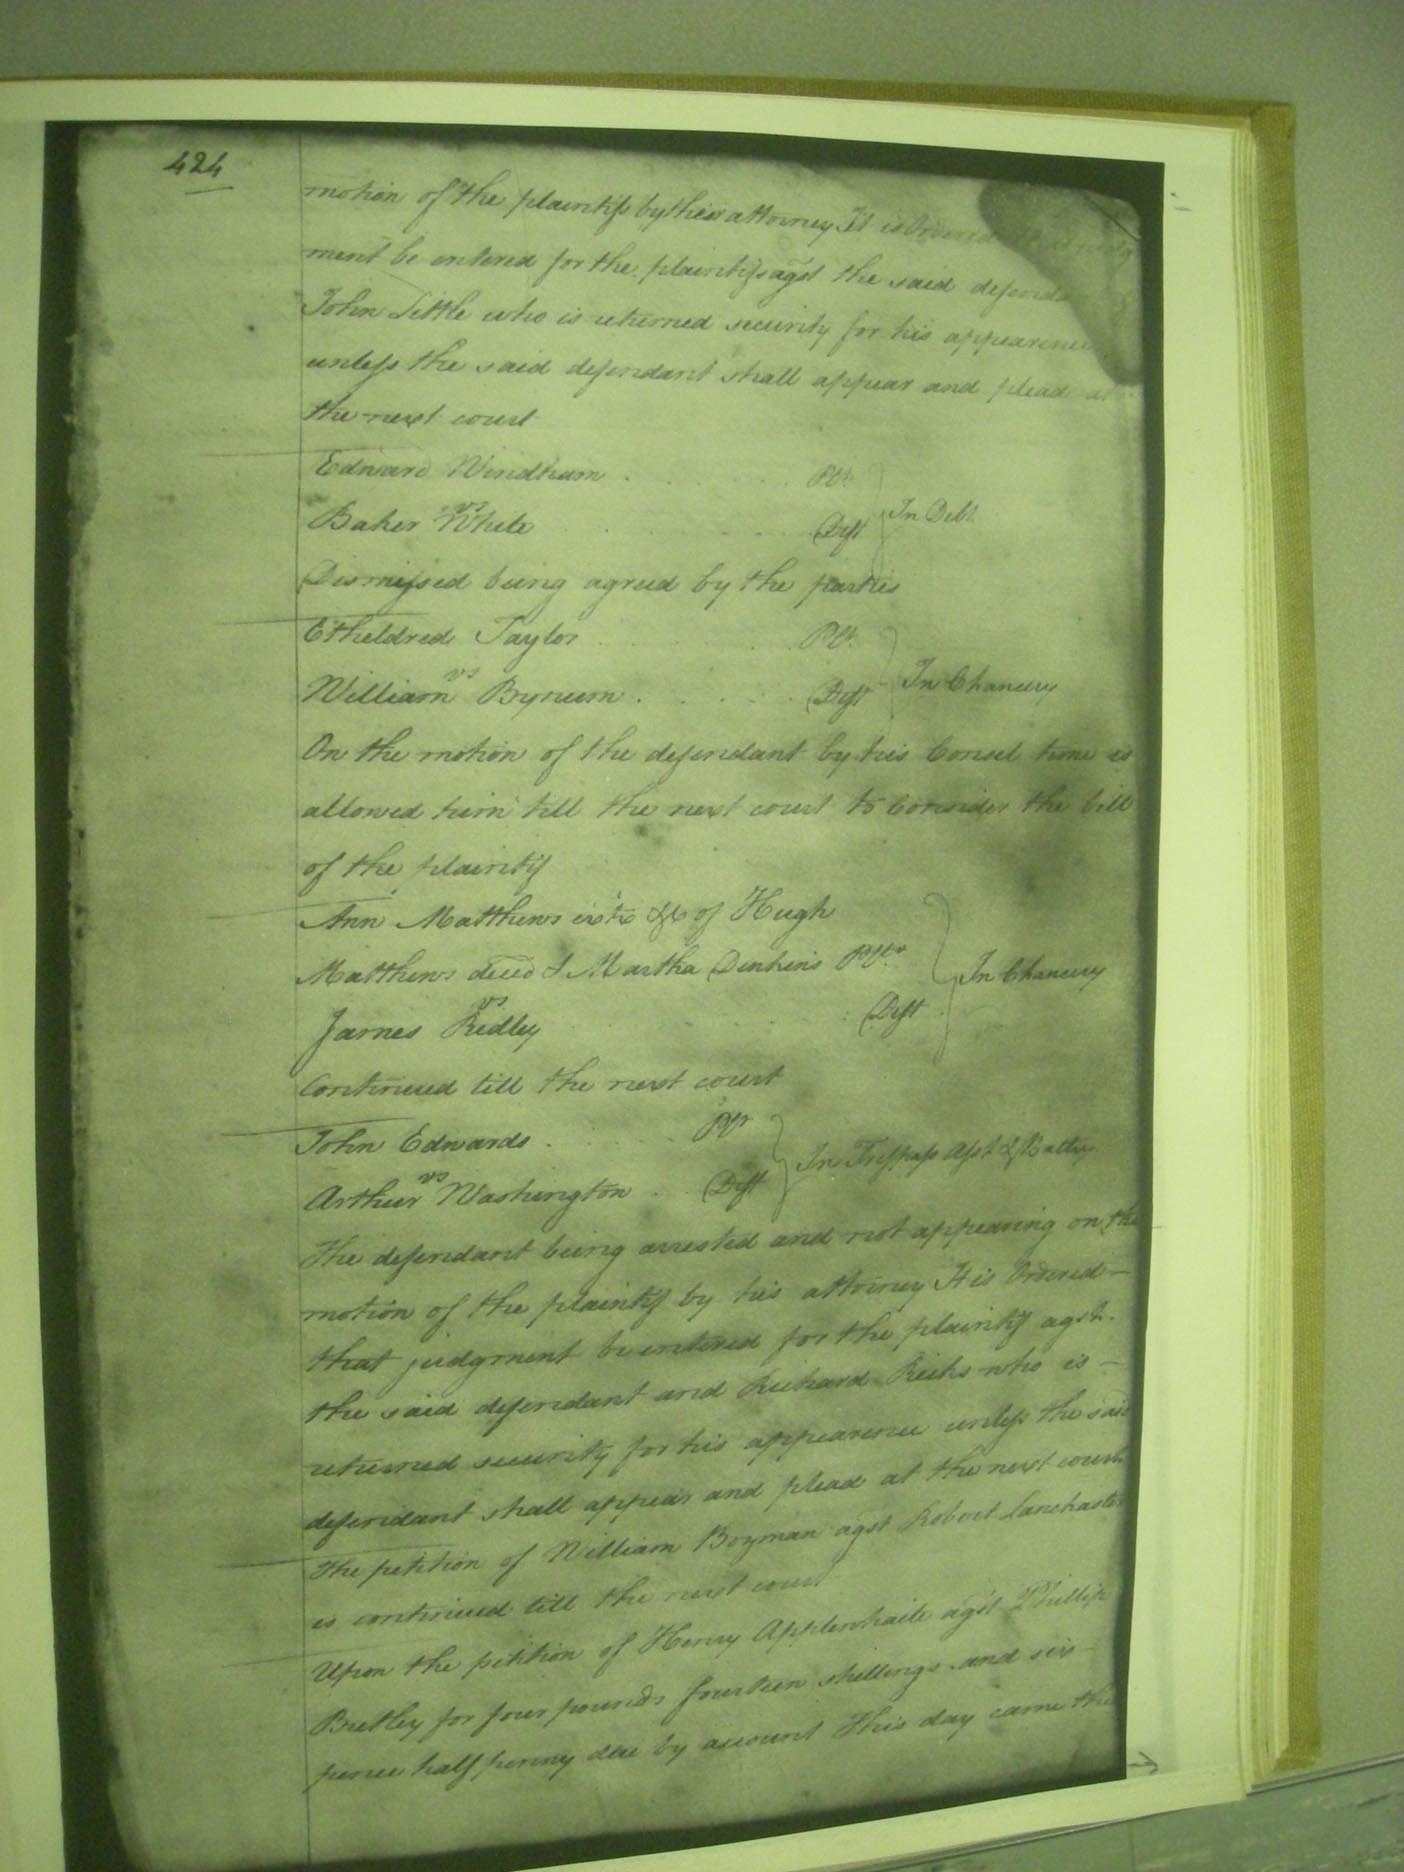 424
motion of the plaintifs by their attorney It is Ordered
ment be entered for the plaintifs agst the said defenda
John Little who is returned security for his appearence
unless the said defendant shall appear and plead at
the next court
Edward Windham Plt.
vs In Debt
Baker White Deft
Dismissed being agreed by the parties
Etheldred Taylor Plt.
vs In Chancery
William Bynum Deft
On the motion of the defendant by his Consel time is
allowed him till the next court to Consider the bill
of the plaintif
Ann Matthews extx &c of Hugh
Matthews deced & Martha Dinkins Plts In Chancery
vs
James Ridley Deft
Continued till the next court
John Edwards Plt
vs In Tresspass Asst & Battery
Arthur Washington Deft
The defendant being arrested and not appearing on the
motion of the plaintif by his attorney It is Ordered
that judgment be entered for the plaintif agst.
the said defendant and Richard Ricks who is
returned security for his appearence unless the said
defendant shall appear and plead at the next court
The petition of William Bozman agst Robert Lanchaster
is continued till the next court
Upon the petition of Henry Applewhaite agst Phillip
Brettley for four pounds fourteen shillings and six
pence half penny due by account This day came the